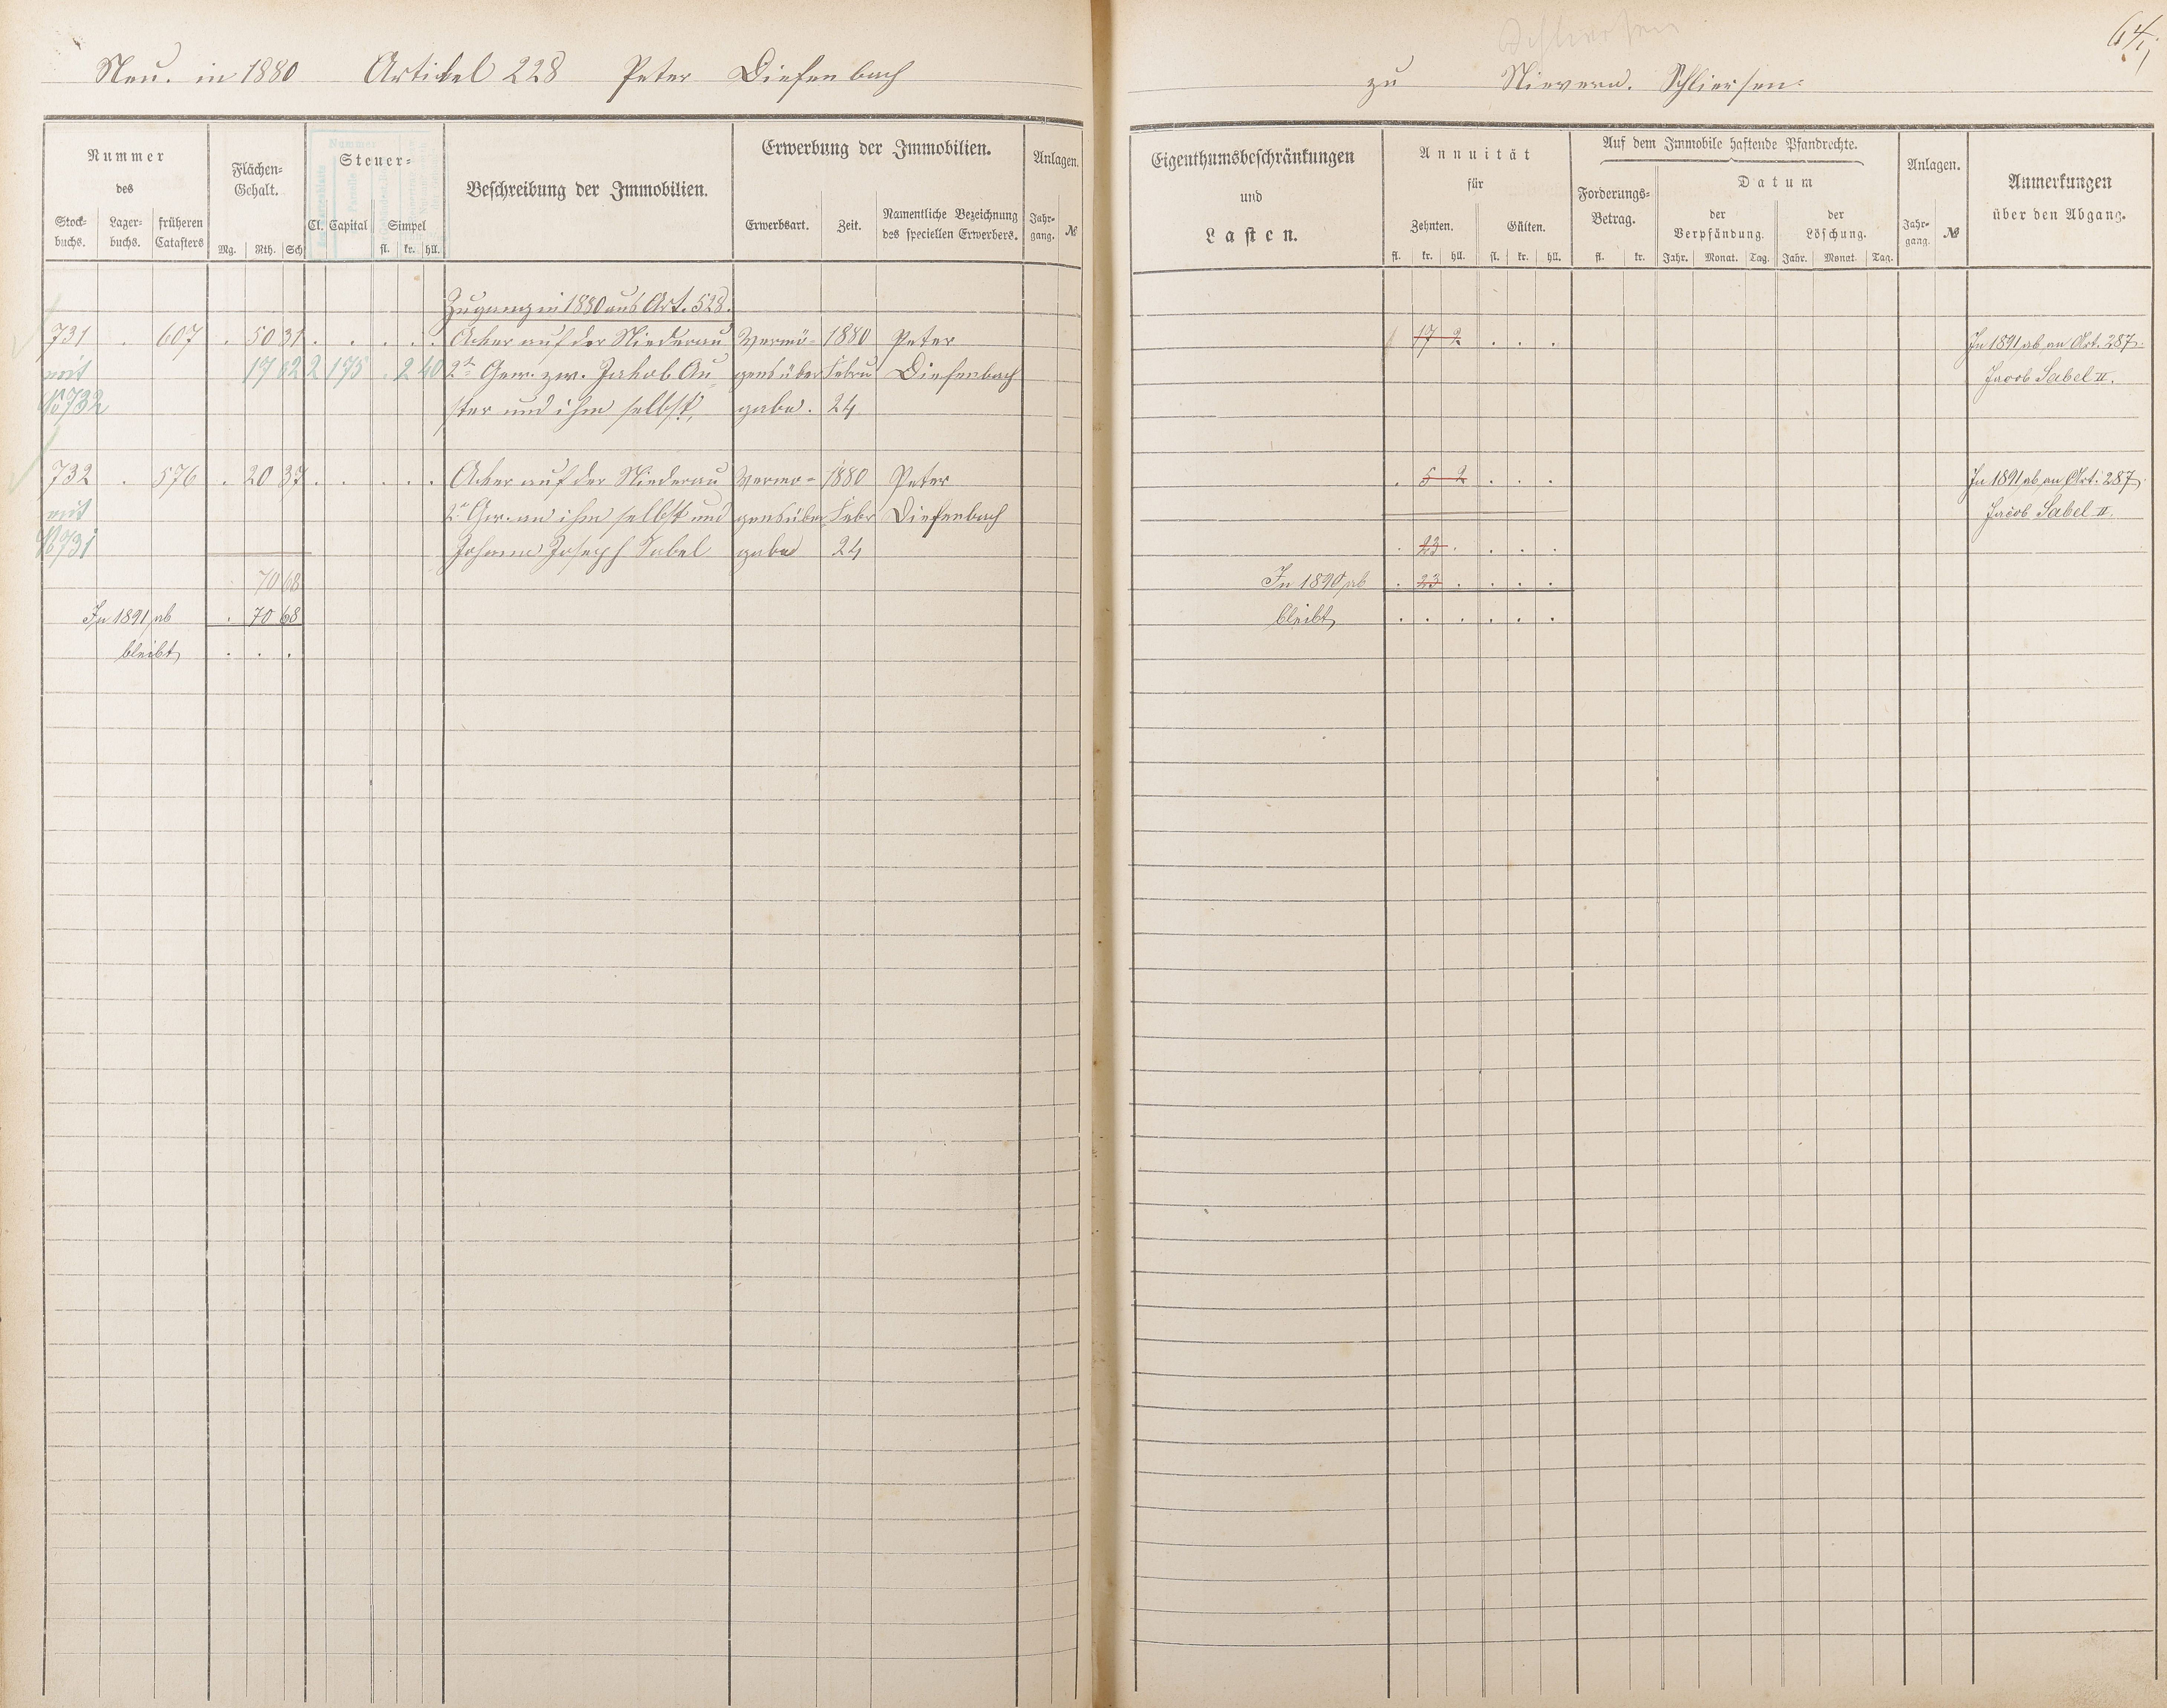 Neu. in 1880 Artikel 228 Peter Diefenbach
Nummer
des
Stock-
buchs.
Lager-
buchs.
früheren
Catasters
Flächen-
Gehalt.
Mg. Rth. Sch
Steuer-
Cl. Capital Simpel
fl. kr. hll.
Beschreibung der Immobilien.
Erwerbung der Immobilien.
Erwerbsart. Zeit.
Namentliche Bezeichnung
des speciellen Erwerbers.
Anlagen.
Jahr-
gang. №
Zugang in 1880 aus Art. 528.
731 . 607 . 50 31 . . . . . Acker auf der Niederau Vermö- 1880 Peter
mit 17 62 2 175 . 2 40 2te Gew. zw. Jakob Au- gensüber Febru Diefenbach
No 732 ster und ihm selbst, gabe. 24
732 . 576 . 20 37 . . . . . Acker auf der Niederau Vermö- 1880 Peter
mit 2te Gew. an ihm selbst und gensüber Febr Diefenbach
No 731 Johann Joseph Sabel gabe 24
70 68
In 1891 ab . 70 68
bleibt . . .
64
zu Nievern. Schliersen.
Eigenthumsbeschränkungen
und
Lasten.
Annuität
für
Zehnten. Gülten.
fl. kr. hll. fl. kr. hll.
Auf dem Immobile haftende Pfandrechte.
Forderungs-
Betrag.
fl. kr.
Datum
der
Verpfändung.
Jahr. Monat. Tag.
der
Löschung.
Jahr. Monat Tag.
Anlagen.
Jahr-
gang. №
Anmerkungen
über den Abgang.
17 2 . . . In 1891 ab an Art. 287
Jacob Sabel II.
. 5 2 . . . In 1891 ab an Art. 287
Jacob Sabel II.
. 23 . . . .
In 1890 ab . 23 . . . .
bleibt . . . . . .